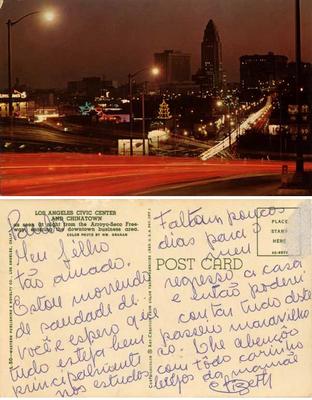 LOS ANGELES CIVIC CENTER
AND CHINATOWN
as seen at night from the Arroyo-Seco Free-
way, showing the downtown business area.
COLOR PHOTO BY WM. GRAHAM
POST CARD
PLACE
STAMP
HERE
Meu filho
tão amado.
Estou morrendo
de saudade de
você e espero que
tudo esteja bem
principalmente
nos estudos
Faltam pouco
dias para o
meu
regresso a casa
e então poderei
contar tudo deste
passeio maravilho
so. Lhe abençôo
com todo carinho
beijos da mamãe